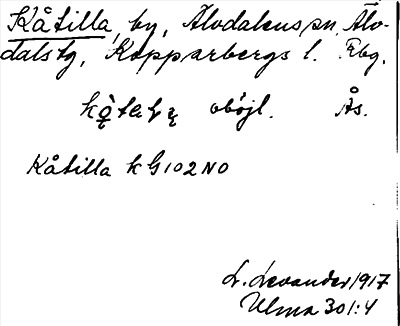 Kåtilla, by, Älvdalens sn, Älv-
dals tg, Kopparbergs l. Rbg.
oböjl. Ås.
Kåtilla kG102NO
L. Levander 1917
Ulma 301:4